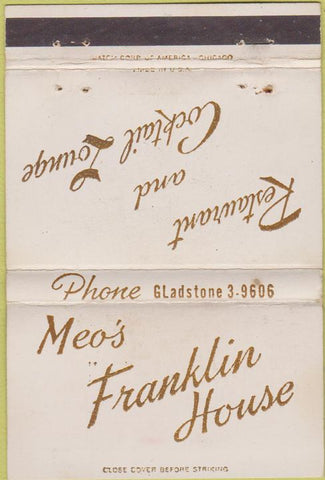 MATCH CORP. OF AMERICA - CHICAGO
MADE IN U.S.A.
Restaurant
and
Cocktail Lounge
Phone GLadstone 3-9606
Meo's
Franklin
House
CLOSE COVER BEFORE STRIKING